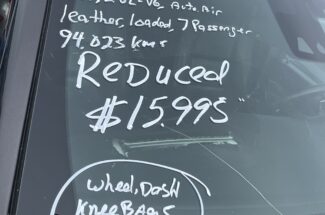 V6, Auto, Air
leather, loaded, 7 Passenger
94,023 kms
Reduced
$15,995"
wheel, Dash
Knee BAGS